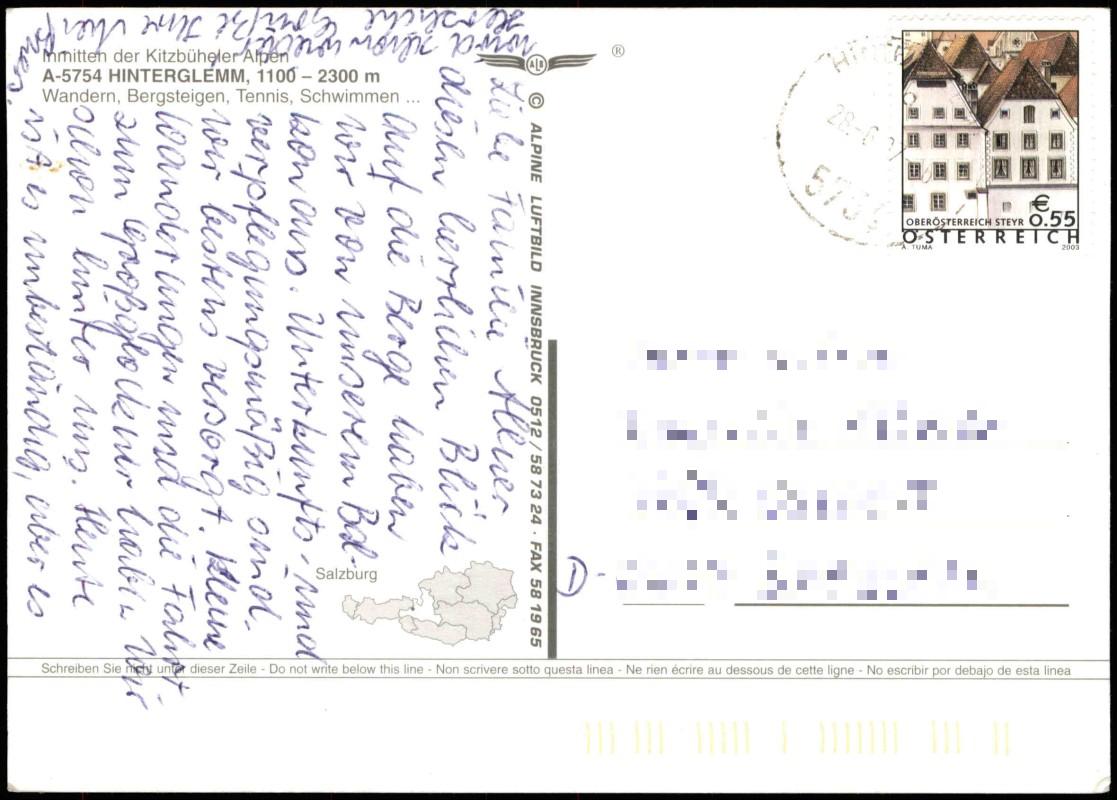 Inmitten der Kitzbüheler Alpen
A-5754 HINTERGLEMM, 1100 – 2300 m
Wandern, Bergsteigen, Tennis, Schwimmen ...
ALB
®
© ALPINE LUFTBILD INNSBRUCK 0512 / 58 73 24 · FAX 58 19 65
Liebe Familie
diesen herrlichen Blick
auf die Berge haben
wir von unserem Bal-
kon aus. Unterkunfts- und
verpflegungsmäßig sind
wir bestens versorgt. Kleine
Wanderungen und die Fahrt
zum Großglockner haben wir
schon hinter uns. Heute
ist es unbeständig, aber es
wird schon wieder
Herzliche Grüße Ihre
Salzburg
HINTER
28.-6.
573
OBERÖSTERREICH STEYR
€ 0.55
ÖSTERREICH
A. TUMA 2003
D-
Schreiben Sie nicht unter dieser Zeile - Do not write below this line - Non scrivere sotto questa linea - Ne rien écrire au dessous de cette ligne - No escribir por debajo de esta linea